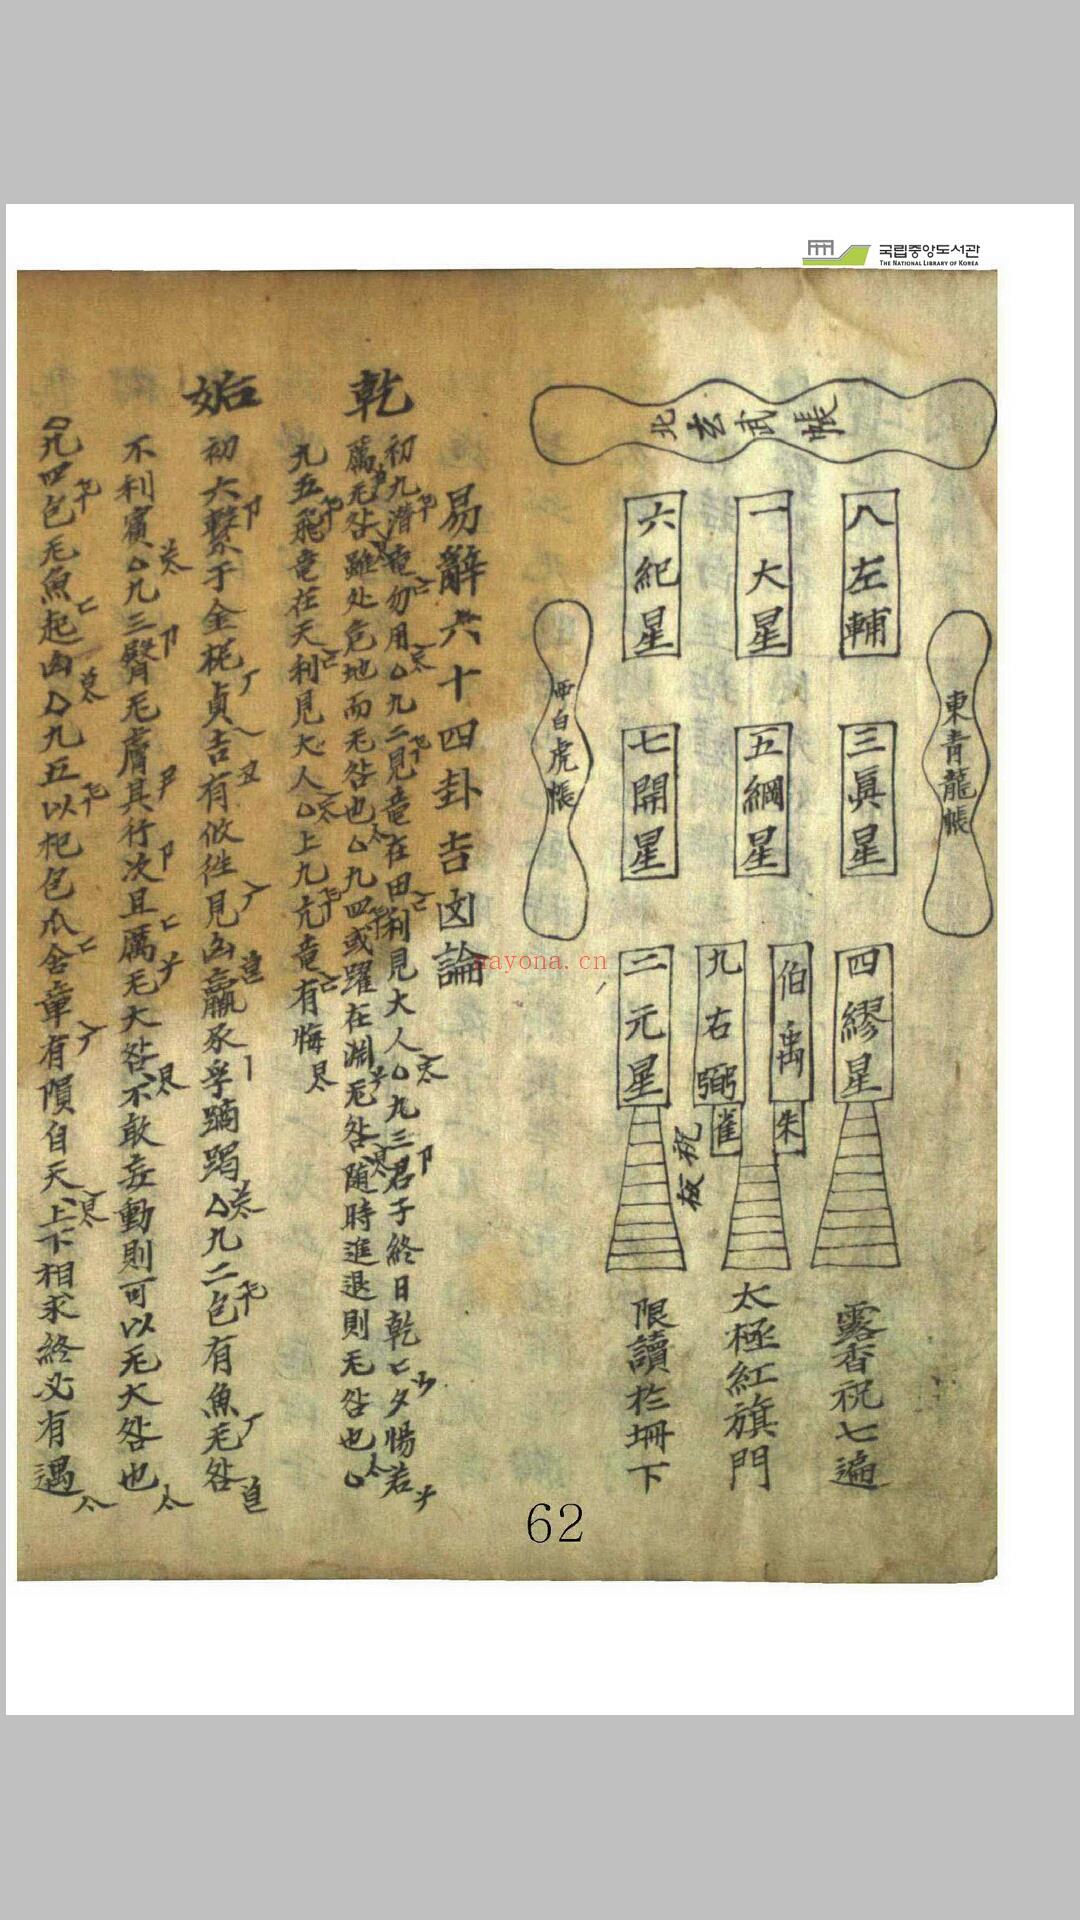 국립중앙도서관
THE NATIONAL LIBRARY OF KOREA
北玄武帳
東青龍帳
西白虎帳
八左輔
一大星
六紀星
三眞星
五綱星
七開星
四繆星
伯禹
九右弼
二元星
朱
雀
祝板
露香祝七遍
太極紅旗門
限讀於坍下
易辭六十四卦吉凶論
乾
初九潛竜勿用 九二見竜在田利見大人 九三君子終日乾〻夕惕若
厲无咎雖处危地而无咎也 九四或躍在淵无咎随時進退則无咎也
九五飛竜在天利見大人 上九亢竜有悔
姤
初六繫于金柅貞吉有攸往見凶羸豕孚蹢躅 九二包有魚无咎
不利賓 九三臀无膚其行次且厲无大咎不敢妄動則可以无大咎也
九四包无魚起凶 九五以杞包瓜含章有隕自天上下相求終必有遇
nayona.cn
62